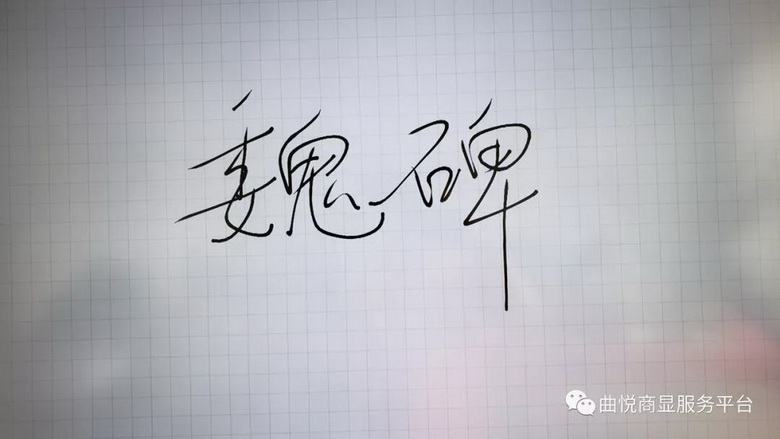 魏碑
曲悦商显服务平台